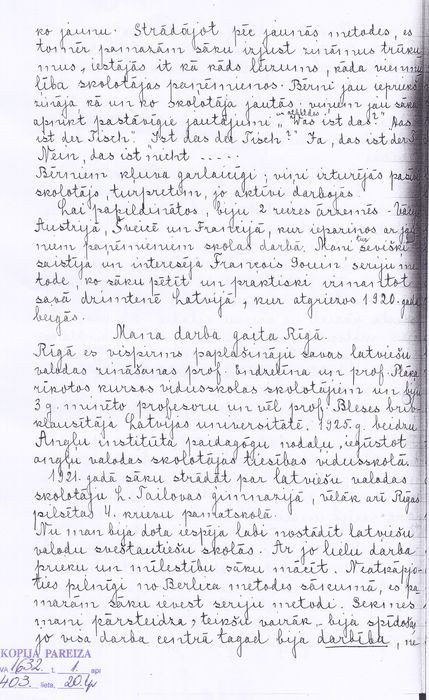 ko jaunu. Strādājot pēc jaunās metodes, es
tomēr pamazām sāku izjust zināmus trūku
mus, iestājās it kā kāds lūzums, kāda vienmu
lība skolotājas paņēmienos. Bērni jau iepriekš
zināja, kā un ko skolotāja jautās, viņiem jau sāka
apnikt pastāvīgie jautājumi un atbildes "Was ist das?" "Das
ist der Tisch". Ist das der Tisch?" Ja, das ist der T
Nein, das ist nicht .....
Bērniem kļuva garlaicīgi, viņi izturējās pasīvi
skolotāja, turpretim, jo aktīvi darbojās.
Lai papildinātos, biju 2 reizes ārzemēs - Vācij
Austrijā, Šveicē un Francijā, kur iepazinos ar jau
niem paņēmieniem skolas darbā. Mani tur sevišķi
saistīja un interesēja François Gouin' seriju me
tode, ko sāku pētīt un praktiski izmantot
savā dzimtenē Latvijā, kur atgriezos 1920. gada
beigās.
Mana darba gaita Rīgā.
Rīgā es vispirms paplašināju savas latviešu
valodas zināšanas prof. Endzelīna un prof. Plāķa
rīkotos kursos vidusskolas skolotājiem un biju
3 g. minēto profesoru un vēl prof. Bleses brīv
klausītāja Latvijas universitātē. 1925. g. beidzu
Angļu institūta paidagogu nodaļu, iegūstot
angļu valodas skolotājas tiesības vidusskolā.
1921. gadā sāku strādāt par latviešu valodas
skolotāju L. Tailovas ģimnazijā, vēlāk arī Rīgas
pilsētas 4. krievu pamatskolā.
Nu man bija dota iespēja labi nostādīt latviešu
valodu sveštautiešu skolās. Ar jo lielu darba
prieku un mīlestību sāku mācīt. Neatkāpjo-
ties pilnīgi no Berlica metodes sākumā, es pa
mazām sāku ievest seriju metodi. Sekmes
mani pārsteidza, teikšu vairāk - bija spīdošas
jo visa darba centrā tagad bija darbība, ne
KOPIJA PAREIZA
1632. f. 1. apr
403. lieta, 20. lp